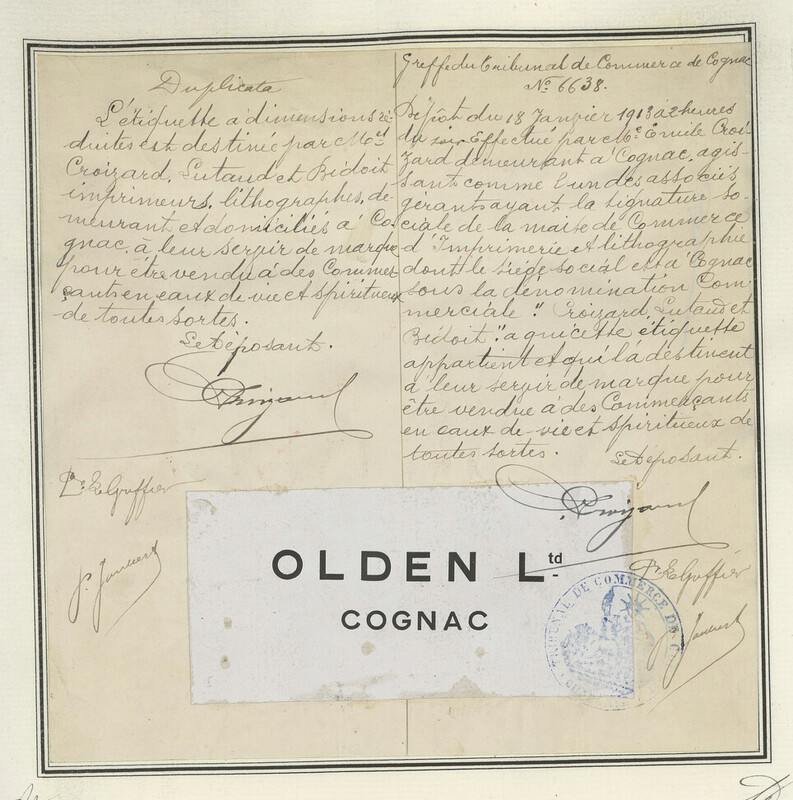 Duplicata
L'étiquette à dimensions ré-
duites est destinée par M.M. et
Croizard, Lutaud et Bidoit
imprimeurs, lithographes, de-
meurant et domiciliés à Co-
gnac, à leur servir de marque
pour être vendu à des Commer-
çants en eaux de vie et spiritueux
de toutes sortes.
Le Déposant.
Croizard
Greffe du Tribunal de Commerce de Cognac
No 6638.
Dépôt du 18 Janvier 1913 à 2 heures
du soir Effectué par Mr. Emile Croi-
zard demeurant à Cognac, agis-
sant comme l'un des associés
gérants ayant la signature so-
ciale de la maison de Commerce
d'Imprimerie et lithographie
dont le siège social est à Cognac
sous la dénomination Com-
merciale "Croizard, Lutaud et
Bidoit" à qui cette étiquette
appartient et qui la destinent
à leur servir de marque pour
être vendue à des Commerçants
en eaux-de-vie et spiritueux de
toutes sortes.
Le Déposant.
Croizard
OLDEN Ltd
COGNAC
TRIBUNAL DE COMMERCE DE